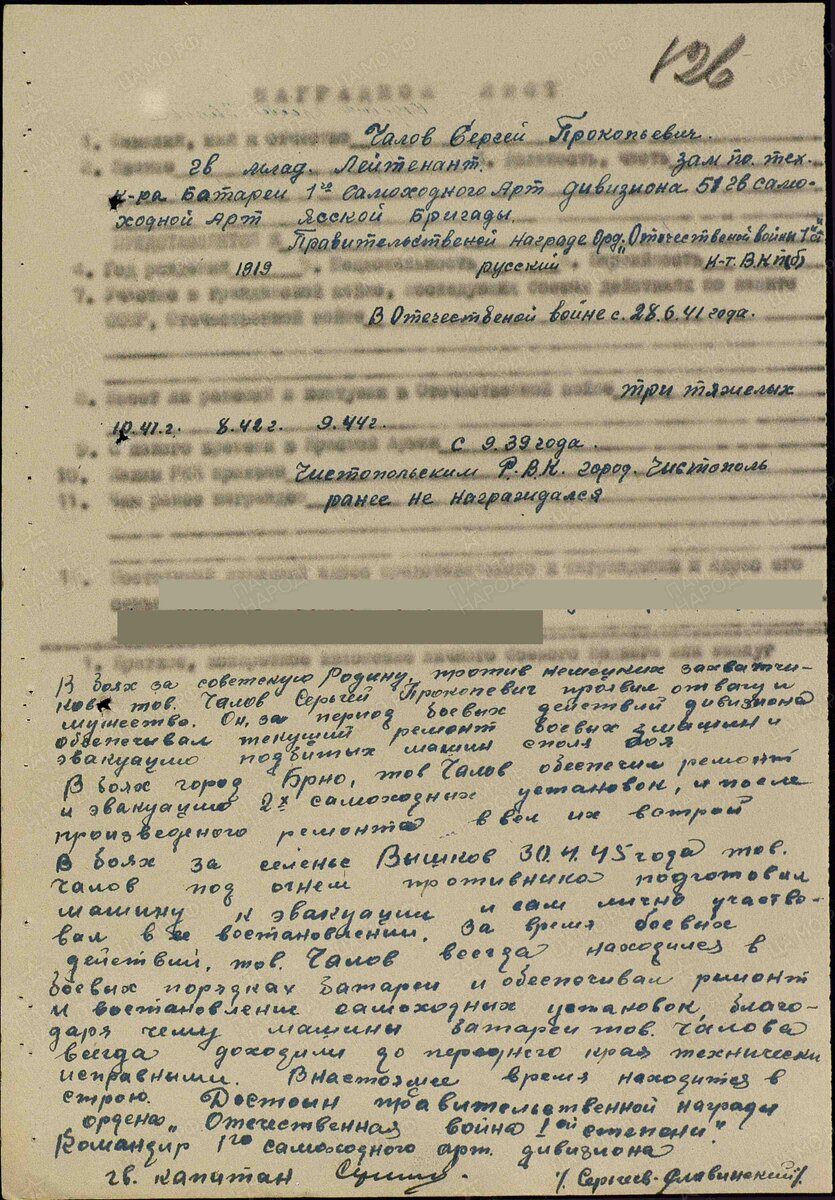 126
НАГРАДНОЙ ЛИСТ
1. Фамилия, имя и отчество Чалов Сергей Прокопьевич.
2. Звание гв млад. Лейтенант. должность, часть зам по тех.
к-ра Батареи 1го Самоходного Арт дивизиона 51 гв само-
ходной Арт Ясской Бригады.
Представляется к Правительственой награде Орд. „Отечественой войны 1й ст"
4. Год рождения 1919 5. Национальность русский 6. Партийность к-т. ВКП(б)
7. Участие в гражданской войне, последующих боевых действиях по защите
СССР, Отечественной войне В Отечественой войне с. 28.6.41 года.
8. Имеет ли ранения и контузии в Отечественной войне три тяжелых
10.41.г. 8.42г. 9.44г.
9. С какого времени в Красной Армии с 9.39 года.
10. Каким РВК призван Чистопольским Р.В.К. город. Чистополь
11. Чем ранее награжден ранее не награждался
12. Постоянный домашний адрес представляемого к награждению и адрес его
семьи
1. Краткое, конкретное изложение личного боевого подвига или заслуг
В боях за советскую Родину, против немецких захватчи-
ков тов. Чалов Сергей Прокопевич проявил отвагу и
мужество. Он, за период боевых действий дивизиона
обеспечывал текущий ремонт боевых машин и
эвакуацию подбитых машин споля боя
В боях город Брно, тов Чалов обеспечил ремонт
и эвакуацию 2х самоходных установок, и после
произведеного ремонта ввел их встрой
В боях за селенье Вышков 30.4.45 года тов.
Чалов под огнем противника подготовил
машину к эвакуации и сам лично участво-
вал в ее востановлении. За время боевых
действий, тов. Чалов всегда находился в
боевых порядках батареи и обеспечивал ремонт
и востановление самоходных установок, благо-
даря чему машины батареи тов. Чалова
всегда доходили до переднего края технически
исправными. Внастоящее время находится в
строю. Достоин правительственной награды
ордена „Отечественная война 1ой степени".
Командир 1го самоходного арт. дивизиона
гв. капитан /. Сергеев-Славинский/.